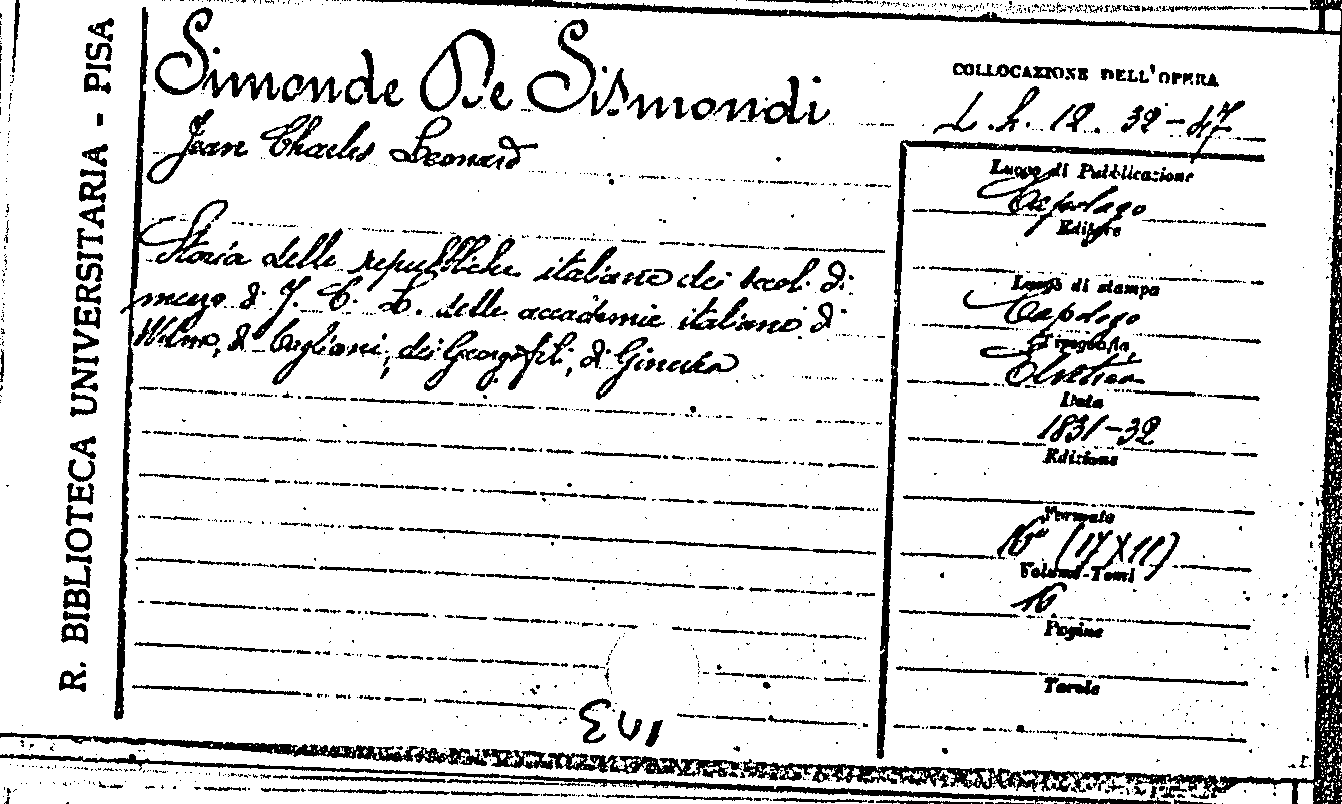 R. BIBLIOTECA UNIVERSITARIA - PISA
Simonde De Sismondi
Jean Charles Leonard
Storia delle repubbliche italiane dei secoli di
mezzo di J. C. L. delle accademie italiana, di
Wilna, di Cagliari, dei Georgofili, di Ginevra
COLLOCAZIONE DELL'OPERA
L. h. 12. 32-47
Luogo di Pubblicazione
Capolago
Editore
Luogo di stampa
Capolago
Tipografia
Elvetica
Data
1831-32
Edizione
Formato
16° (17X11)
Volumi-Tomi
16
Pagine
Tavole